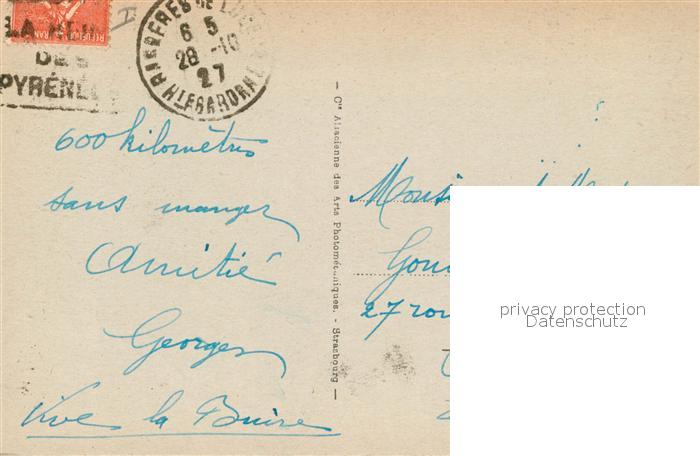 LA REINE
DES
PYRÉNÉES
DE LUCHON
6 5
28 -10
27
HTE GARONNE
600 kilomètres
sans manger
Amitié
Georges
Vive la Buire
— Cie Alsacienne des Arts Photomécaniques. - Strasbourg —
27
privacy protection
Datenschutz